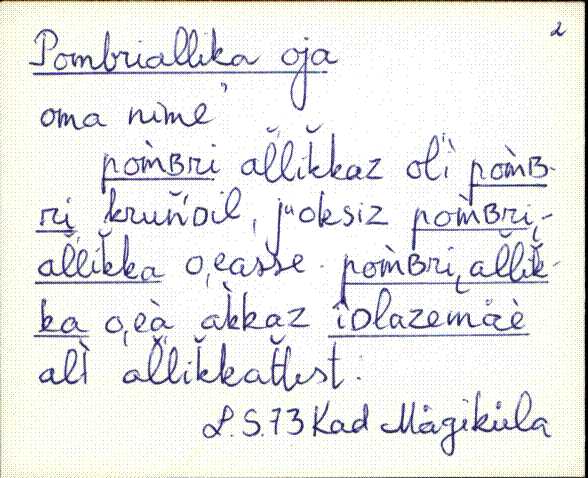 2
Pombriallika oja
oma nime
pòmʙri al̆lik̆kaz ol'i pòmʙ-
ri krun̆'ᴅil, juoksiz pòmʙri-
al̆lik̆ka o̭j̭easse. pòmʙri̭al̆lik̆-
ka o̭j̭eà àk̆kaz îᴅlazemåè
alì al̆lik̆kat̆l̆est.
L.S.73 Kad Mägiküla